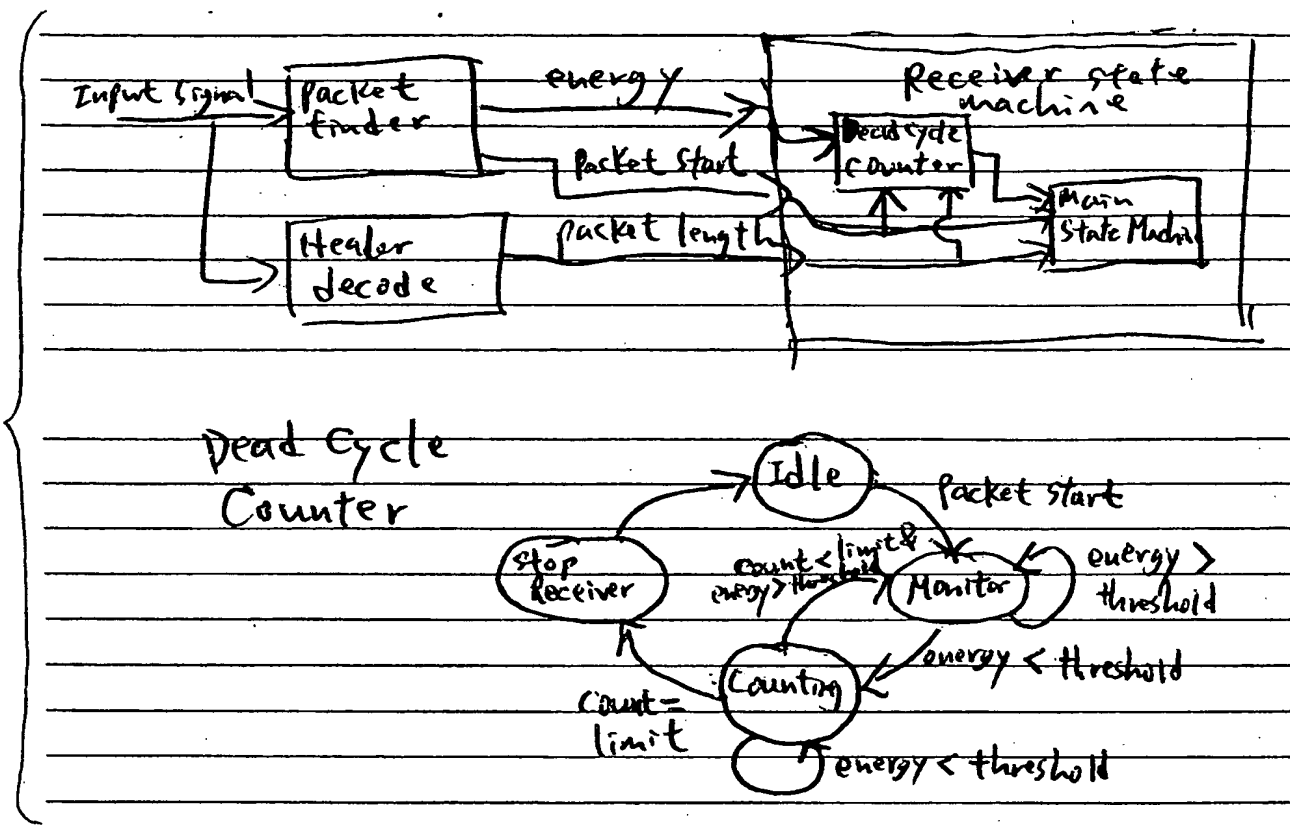 Input Signal
Packet
finder
energy
Packet Start
Header
decode
packet length
Receiver state
machine
Dead Cycle
counter
Main
State Machin
Dead Cycle
Counter
Idle
Packet start
Stop
Receiver
count < limit &
energy > threshold
Monitor
energy >
threshold
energy < threshold
Counting
Count =
limit
energy < threshold